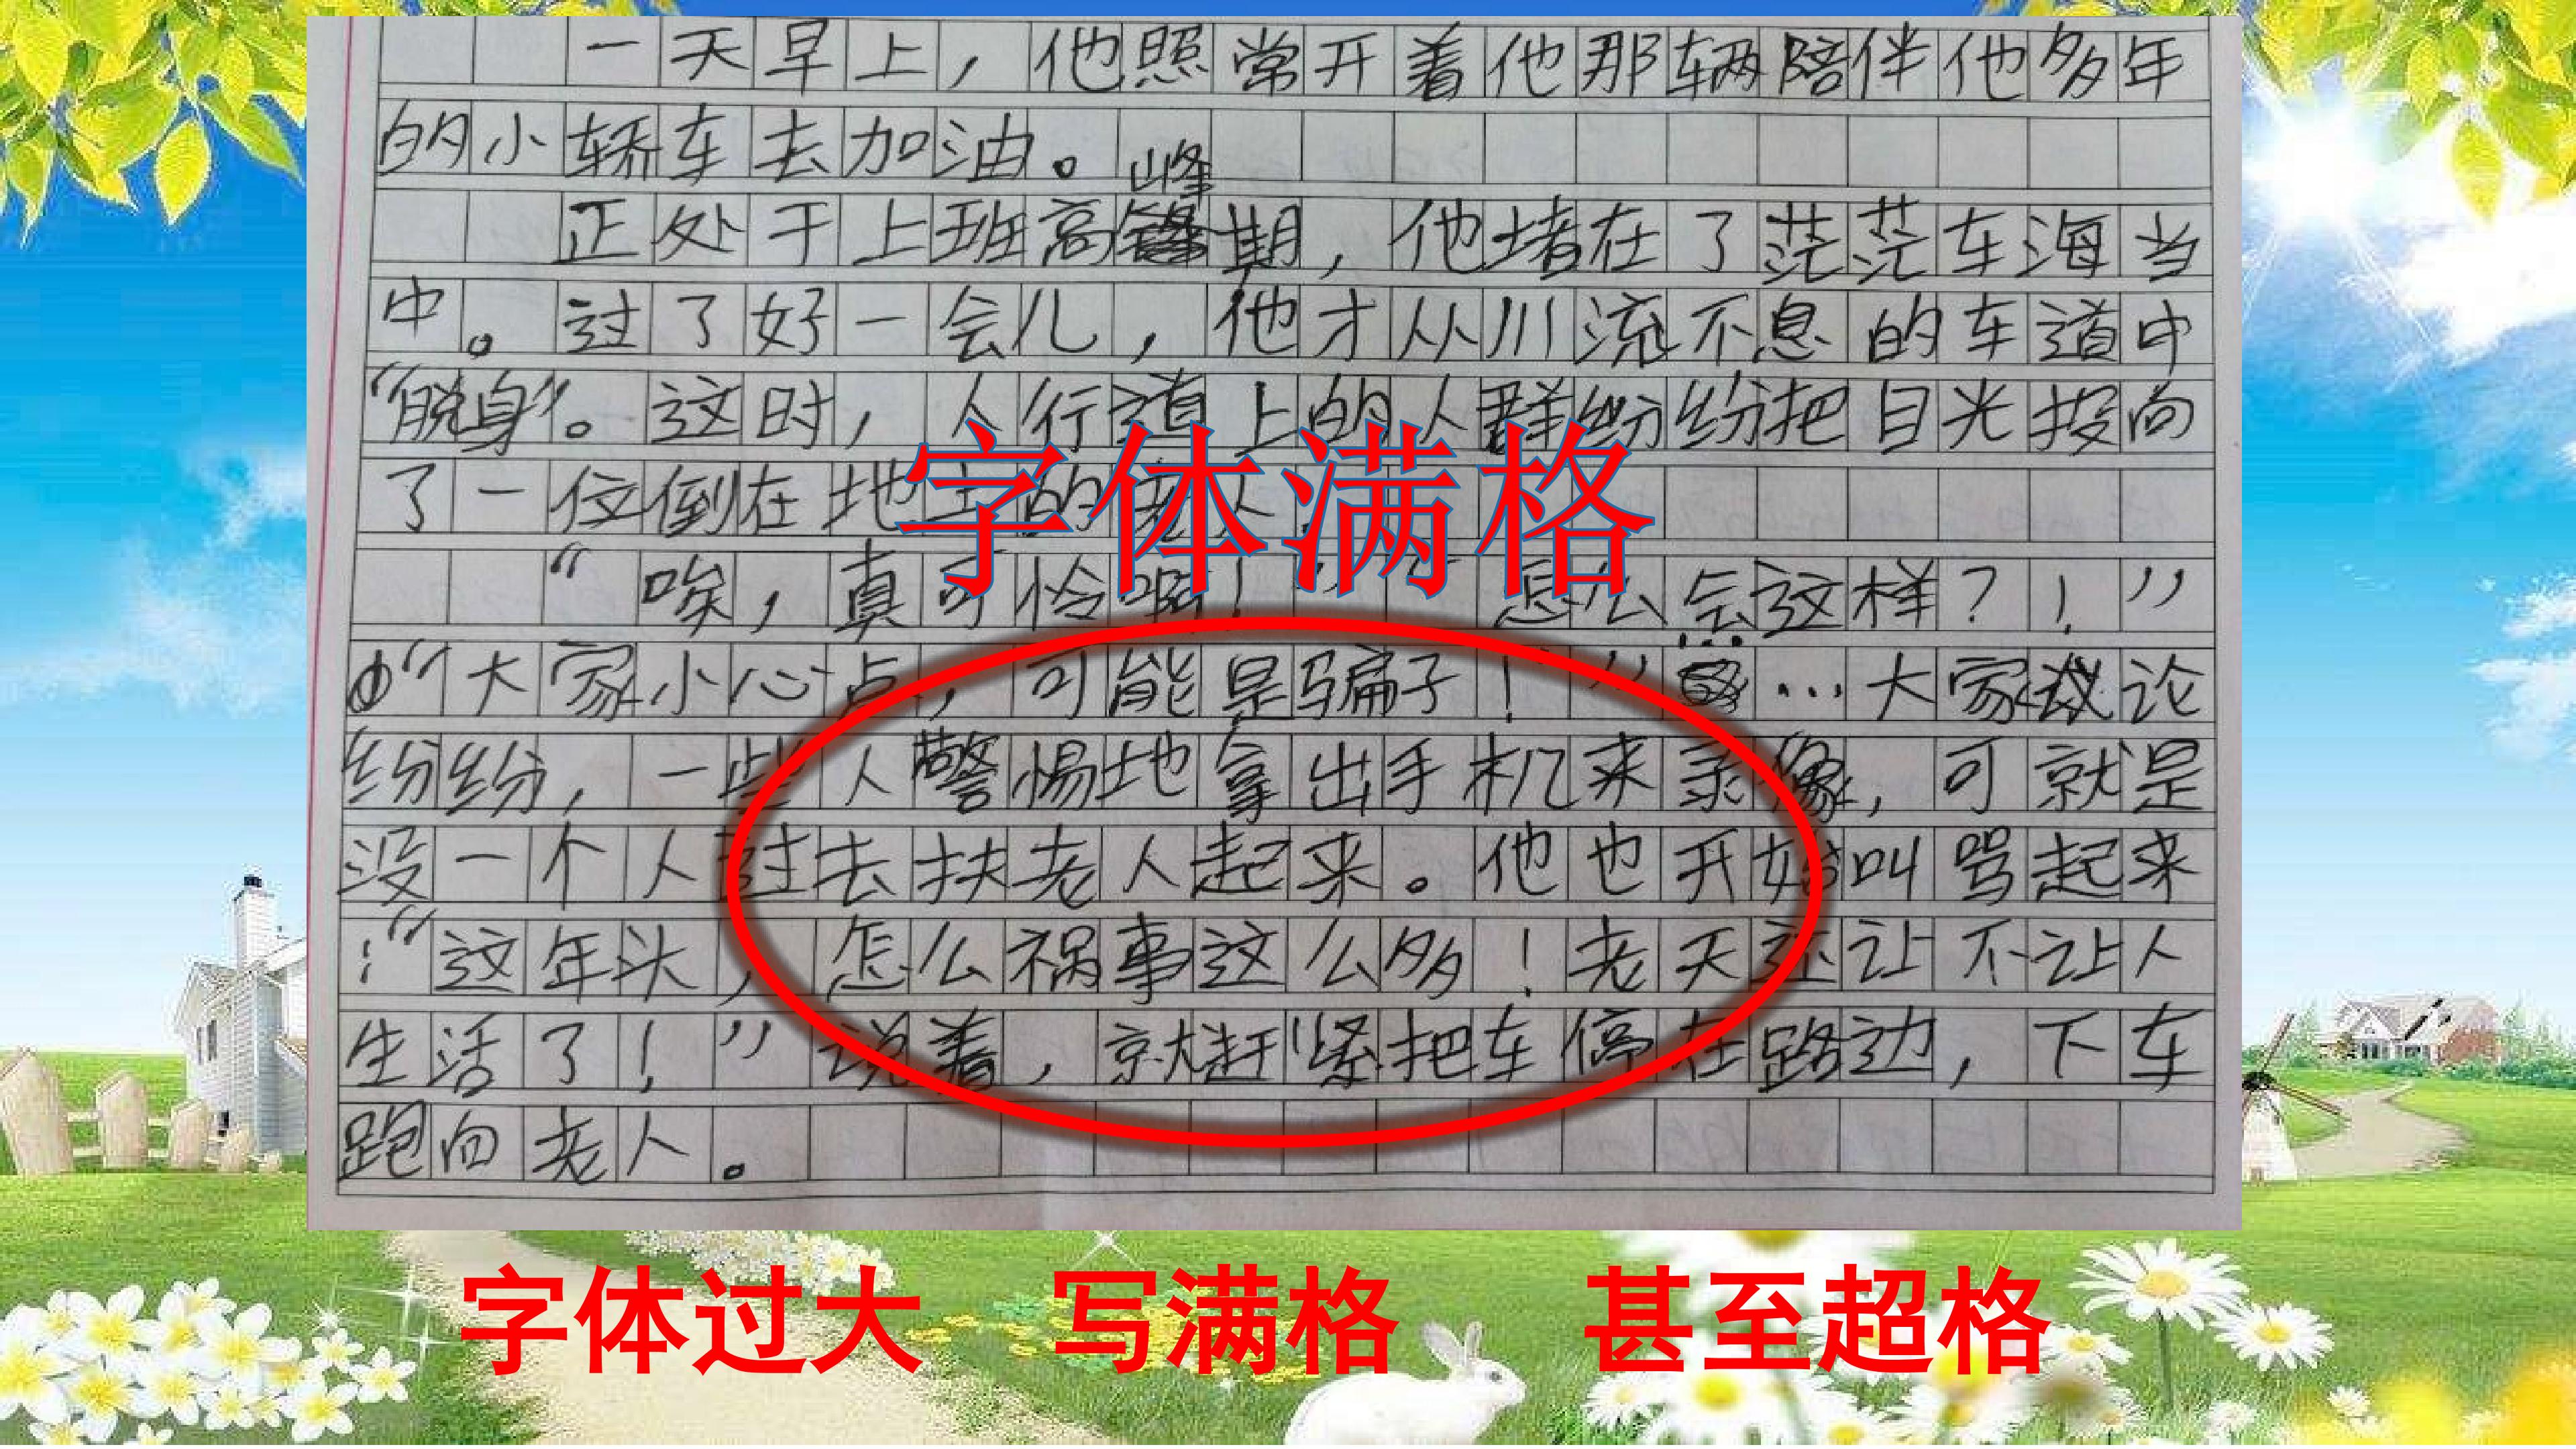 一天早上，他照常开着他那辆陪伴他多年
的小轿车去加油。
正处于上班高峰期，他堵在了茫茫车海当
中。过了好一会儿，他才从川流不息的车道中
“脱身”。这时，人行道上的人群纷纷把目光投向
了一位倒在地上的老人
字体满格
“唉，真可怜啊！”“怎么会这样？！”
“大家小心点，可能是骗子！”……大家议论
纷纷，一些人警惕地拿出手机来录像，可就是
没一个人过去扶老人起来。他也开始叫骂起来
：“这年头，怎么祸事这么多！老天还让不让人
生活了！”说着，就赶紧把车停在路边，下车
跑向老人。
字体过大 写满格 甚至超格